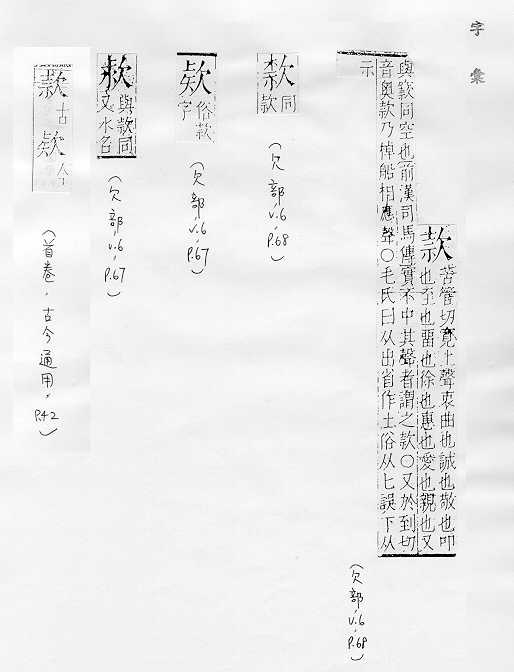 字彙
款
苦管切寬上聲衷曲也誠也敬也叩
也至也畱也徐也惠也愛也親也又
與窾同空也前漢司馬傳實不中其聲者謂之款○又於到切
音奧款乃棹船相應聲○毛氏曰从出省作士俗从匕誤下从
示
(欠部,v.6,P.68)
同
款
(欠部,v.6,P.68)
欵
俗款
字
(欠部,v.6,P.67)
與款同
又水名
(欠部,v.6,P.67)
款古
欵今
(首卷,古今通用,P.42)